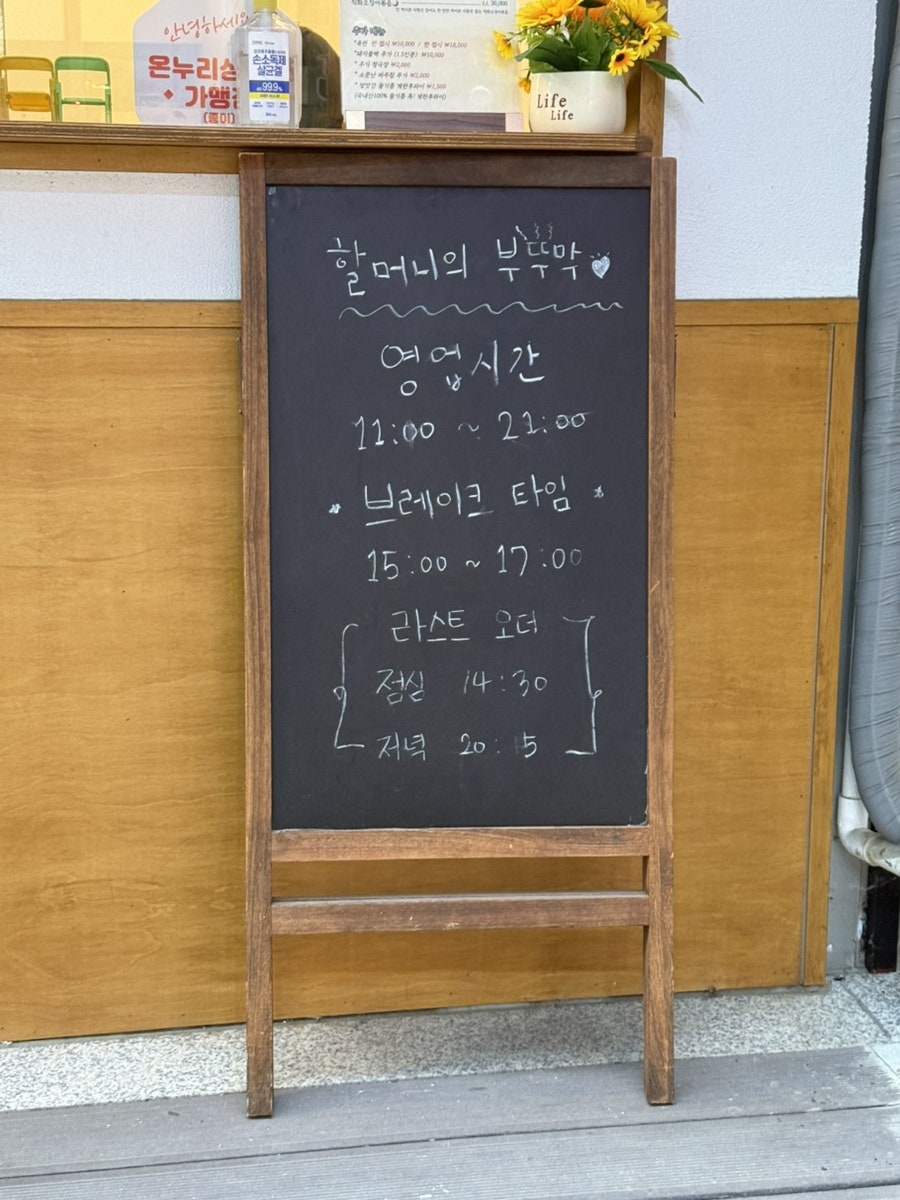 안녕하세요
온누리상
가맹점
(종이)
손소독제
살균겔
99.9%
직화오징어볶음 2人 30,000
추가 메뉴
*육전 반 접시 ₩10,000 / 한 접시 ₩18,000
*돼지불백 추가 (1.5인분) ₩10,000
* 추가 청국장 ₩2,000
Life
Life
할머니의 부뚜막
영업시간
11:00 ~ 21:00
브레이크 타임
15:00 ~ 17:00
라스트 오더
점심 14:30
저녁 20:15